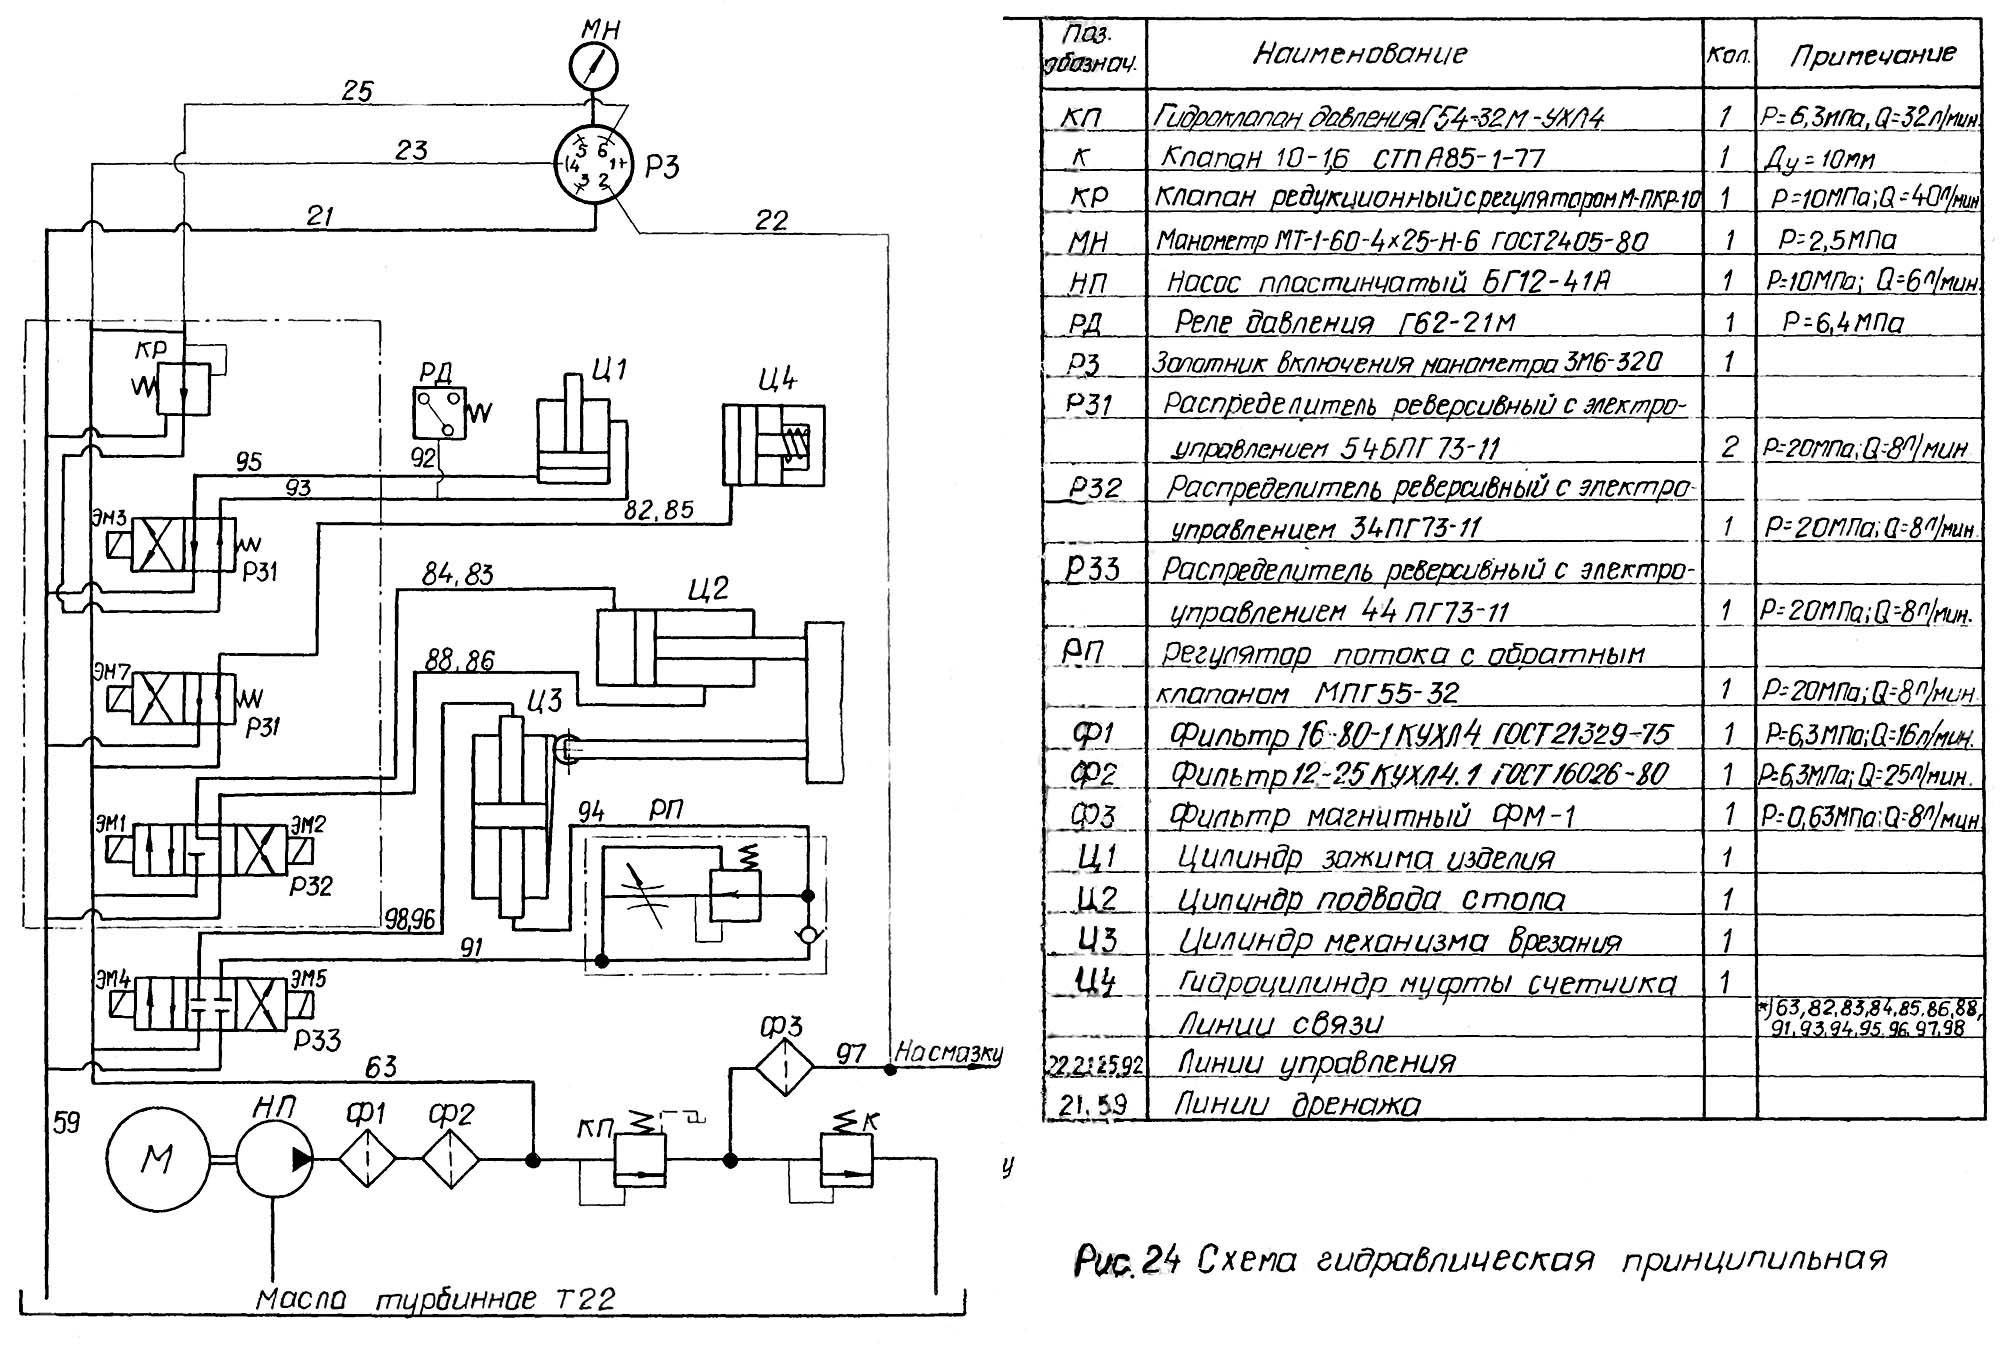 МН
25
23
5 6
4 1
3 2
РЗ
21
22
КР
РД
Ц1
Ц4
92
95
93
82,85
ЭМ3
Р31
84,83
Ц2
88,86
ЭМ7
Ц3
Р31
94
РП
ЭМ1
ЭМ2
Р32
98,96
91
ЭМ4
ЭМ5
Р33
Ф3
97
На смазку
63
59
НП
Ф1
Ф2
КП
К
М
у
Масло турбинное Т22
Поз. обознач. Наименование Кол. Примечание
КП Гидроклапан давления Г54-32М-УХЛ4 1 Р=6,3мпа, Q=32л/мин.
К Клапан 10-1,6 СТП А85-1-77 1 Ду=10мм
КР Клапан редукционный с регулятором М-ПКР-10 1 Р=10МПа; Q=40л/мин
МН Манометр МТ-1-60-4х25-Н-6 ГОСТ2405-80 1 Р=2,5МПа
НП Насос пластинчатый БГ12-41А 1 Р=10МПа; Q=6л/мин.
РД Реле давления Г62-21М 1 Р=6,4МПа
РЗ Золотник включения манометра ЗМ6-320 1
Р31 Распределитель реверсивный с электро-
управлением 54БПГ73-11 2 Р=20МПа; Q=8л/мин
Р32 Распределитель реверсивный с электро-
управлением 34ПГ73-11 1 Р=20МПа; Q=8л/мин.
Р33 Распределитель реверсивный с электро-
управлением 44 ПГ73-11 1 Р=20МПа; Q=8л/мин.
РП Регулятор потока с обратным
клапаном МПГ55-32 1 Р=20МПа; Q=8л/мин.
Ф1 Фильтр 16-80-1КУХЛ4 ГОСТ21329-75 1 Р=6,3МПа; Q=16л/мин.
Ф2 Фильтр 12-25КУХЛ4.1 ГОСТ16026-80 1 Р=6,3МПа; Q=25л/мин.
Ф3 Фильтр магнитный ФМ-1 1 Р=0,63МПа; Q=8л/мин
Ц1 Цилиндр зажима изделия 1
Ц2 Цилиндр подвода стола 1
Ц3 Цилиндр механизма врезания 1
Ц4 Гидроцилиндр муфты счетчика 1
Линии связи *)63,82,83,84,85,86,88,
91,93,94,95,96,97,98
Линии управления
21,59 Линии дренажа
Рис.24 Схема гидравлическая принципильная